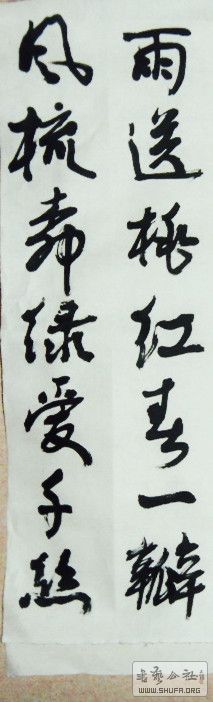 雨送桃红春一瓣
风梳绿爱千絲
书艺公社
WWW.SHUFA.ORG